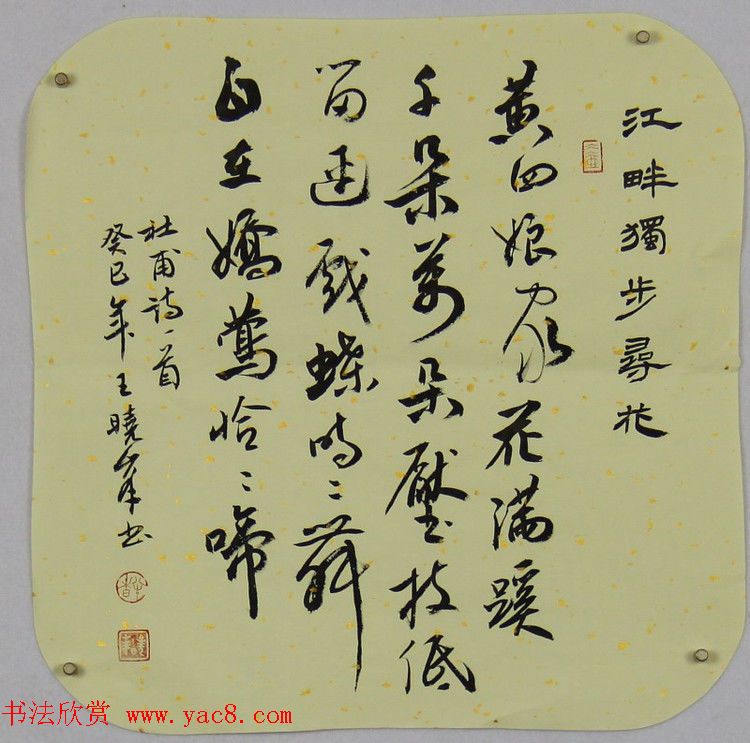 江畔獨步尋花
黄四娘家花满蹊
千朵萬朵壓枝低
留連戲蝶時〻舞
自在嬌鶯恰〻啼
杜甫詩一首
癸巳年王曉书
书法欣赏 www.yac8.com